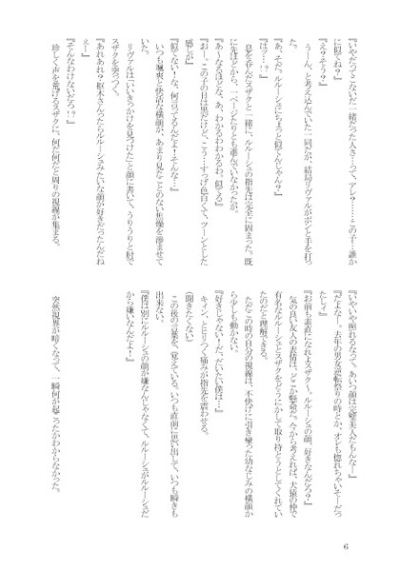 『いやだってこないだ一緒だった人さ…って、アレ？……この子…誰か
に似てね？』
『え？そう？』
『うーん、と考え込んでいた一同だが、結局リヴァルがポンと手を打っ
た。
『あ、そだ、ルルーシュにちょっと似てんじゃん？』
『は…？！』
　息を呑んだスザクと一緒に、ルルーシュの指先は完全に固まった。既
に先ほどから、一ページたりとも進んでいなかったが。
『あ～なるほどなぁ、あ、わかるわかるわ、似てる』
『おー、この子の目は黒だけど、こう…すっげ色白くて、ツーンとした
感じが』
『似てない！な、何言ってるんだよ！そんな…』
　いつも颯爽と快活な横顔が、あまり見たことのない焦燥を滲ませて
いた。
　リヴァルは「いいきっかけを見つけた」と顔に書いて、うりうりと肘で
スザクを突つく。
『あれあれ？枢木さんったらルルーシュみたいな顔が好きだったんだね
え～』
『そんなわけないだろ！？』
　珍しく声を荒げるスザクに、何だ何だと周りの視線が集まる。
『いやいや照れるなって、あいつ顔は完璧美人だもんなー』
『だよなー。去年の男女逆転祭りの時とか、オレも惚れちゃいそーだっ
たし？』
『お前も素直になれよスザクー。ルルーシュの顔、好きなんだろ？』
　気の良い友人の表情は、どこか懸命だ。今から考えれば、犬猿の仲で
有名なルルーシュとスザクをどうにかして取り持とうとしてくれてい
たのだと理解できる。
　ただこの時の自分の視線は、不快げに引き攣った幼なじみの横顔か
ら少しも動かない。
『好きじゃない！だ、だいたい僕は…！』
　キィン、とひりつく痛みが指先を震わせる。
（聞きたくない）
　この後の言葉を、覚えている。いつも直前に思い出して、いつも瞬きも
出来ない。
『僕は別にルルーシュの顔が嫌なんじゃなくて、ルルーシュがルルーシュだ
から嫌いなんだよ！』
　突然視界が暗くなって、一瞬何が起こったかわからなかった。
6